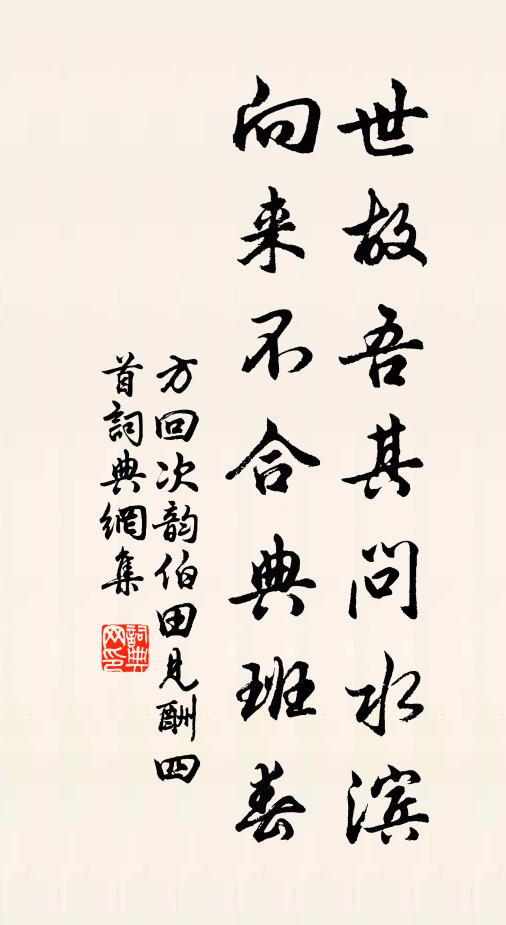 世故吾其问水滨
向来不合典班春
方回次韵伯田见酬四
首词典網集
詞典网印